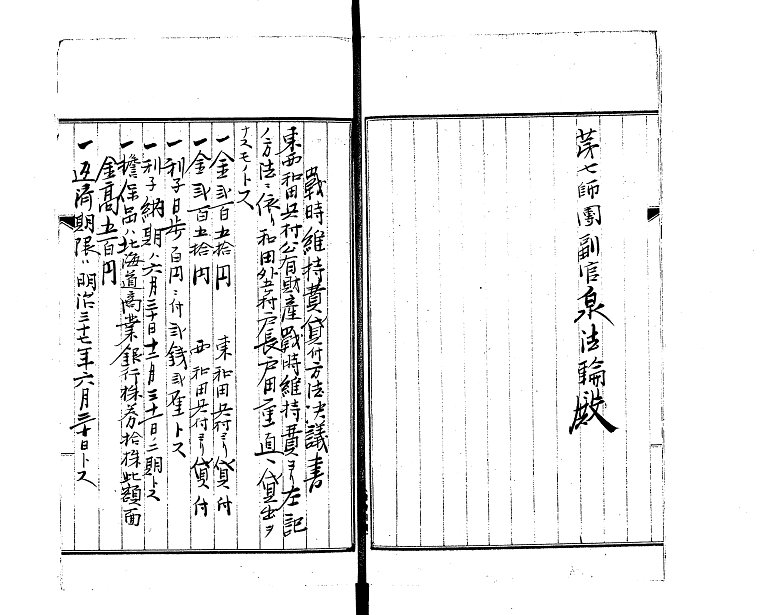 第七師團副官泉法輪殿
戰時維持費貸付方法決議書
東西和田兵村公有財産戰時維持費ヨリ左記
ノ方法ニ依リ和田外五村戸長戸田重直ヘ貸出ヲ
ナスモノトス
一金弐百五拾円　東和田兵村ヨリ貸付
一金弐百五拾円　西和田兵村ヨリ貸付
一利子日歩百円ニ付弐銭弐厘トス
一利子納期ハ六月三十日十二月三十日二期トス
一擔保品ハ北海道商業銀行株券拾株此額面
金髙五百円
一返済期限ハ明治三十七年六月三十日トス